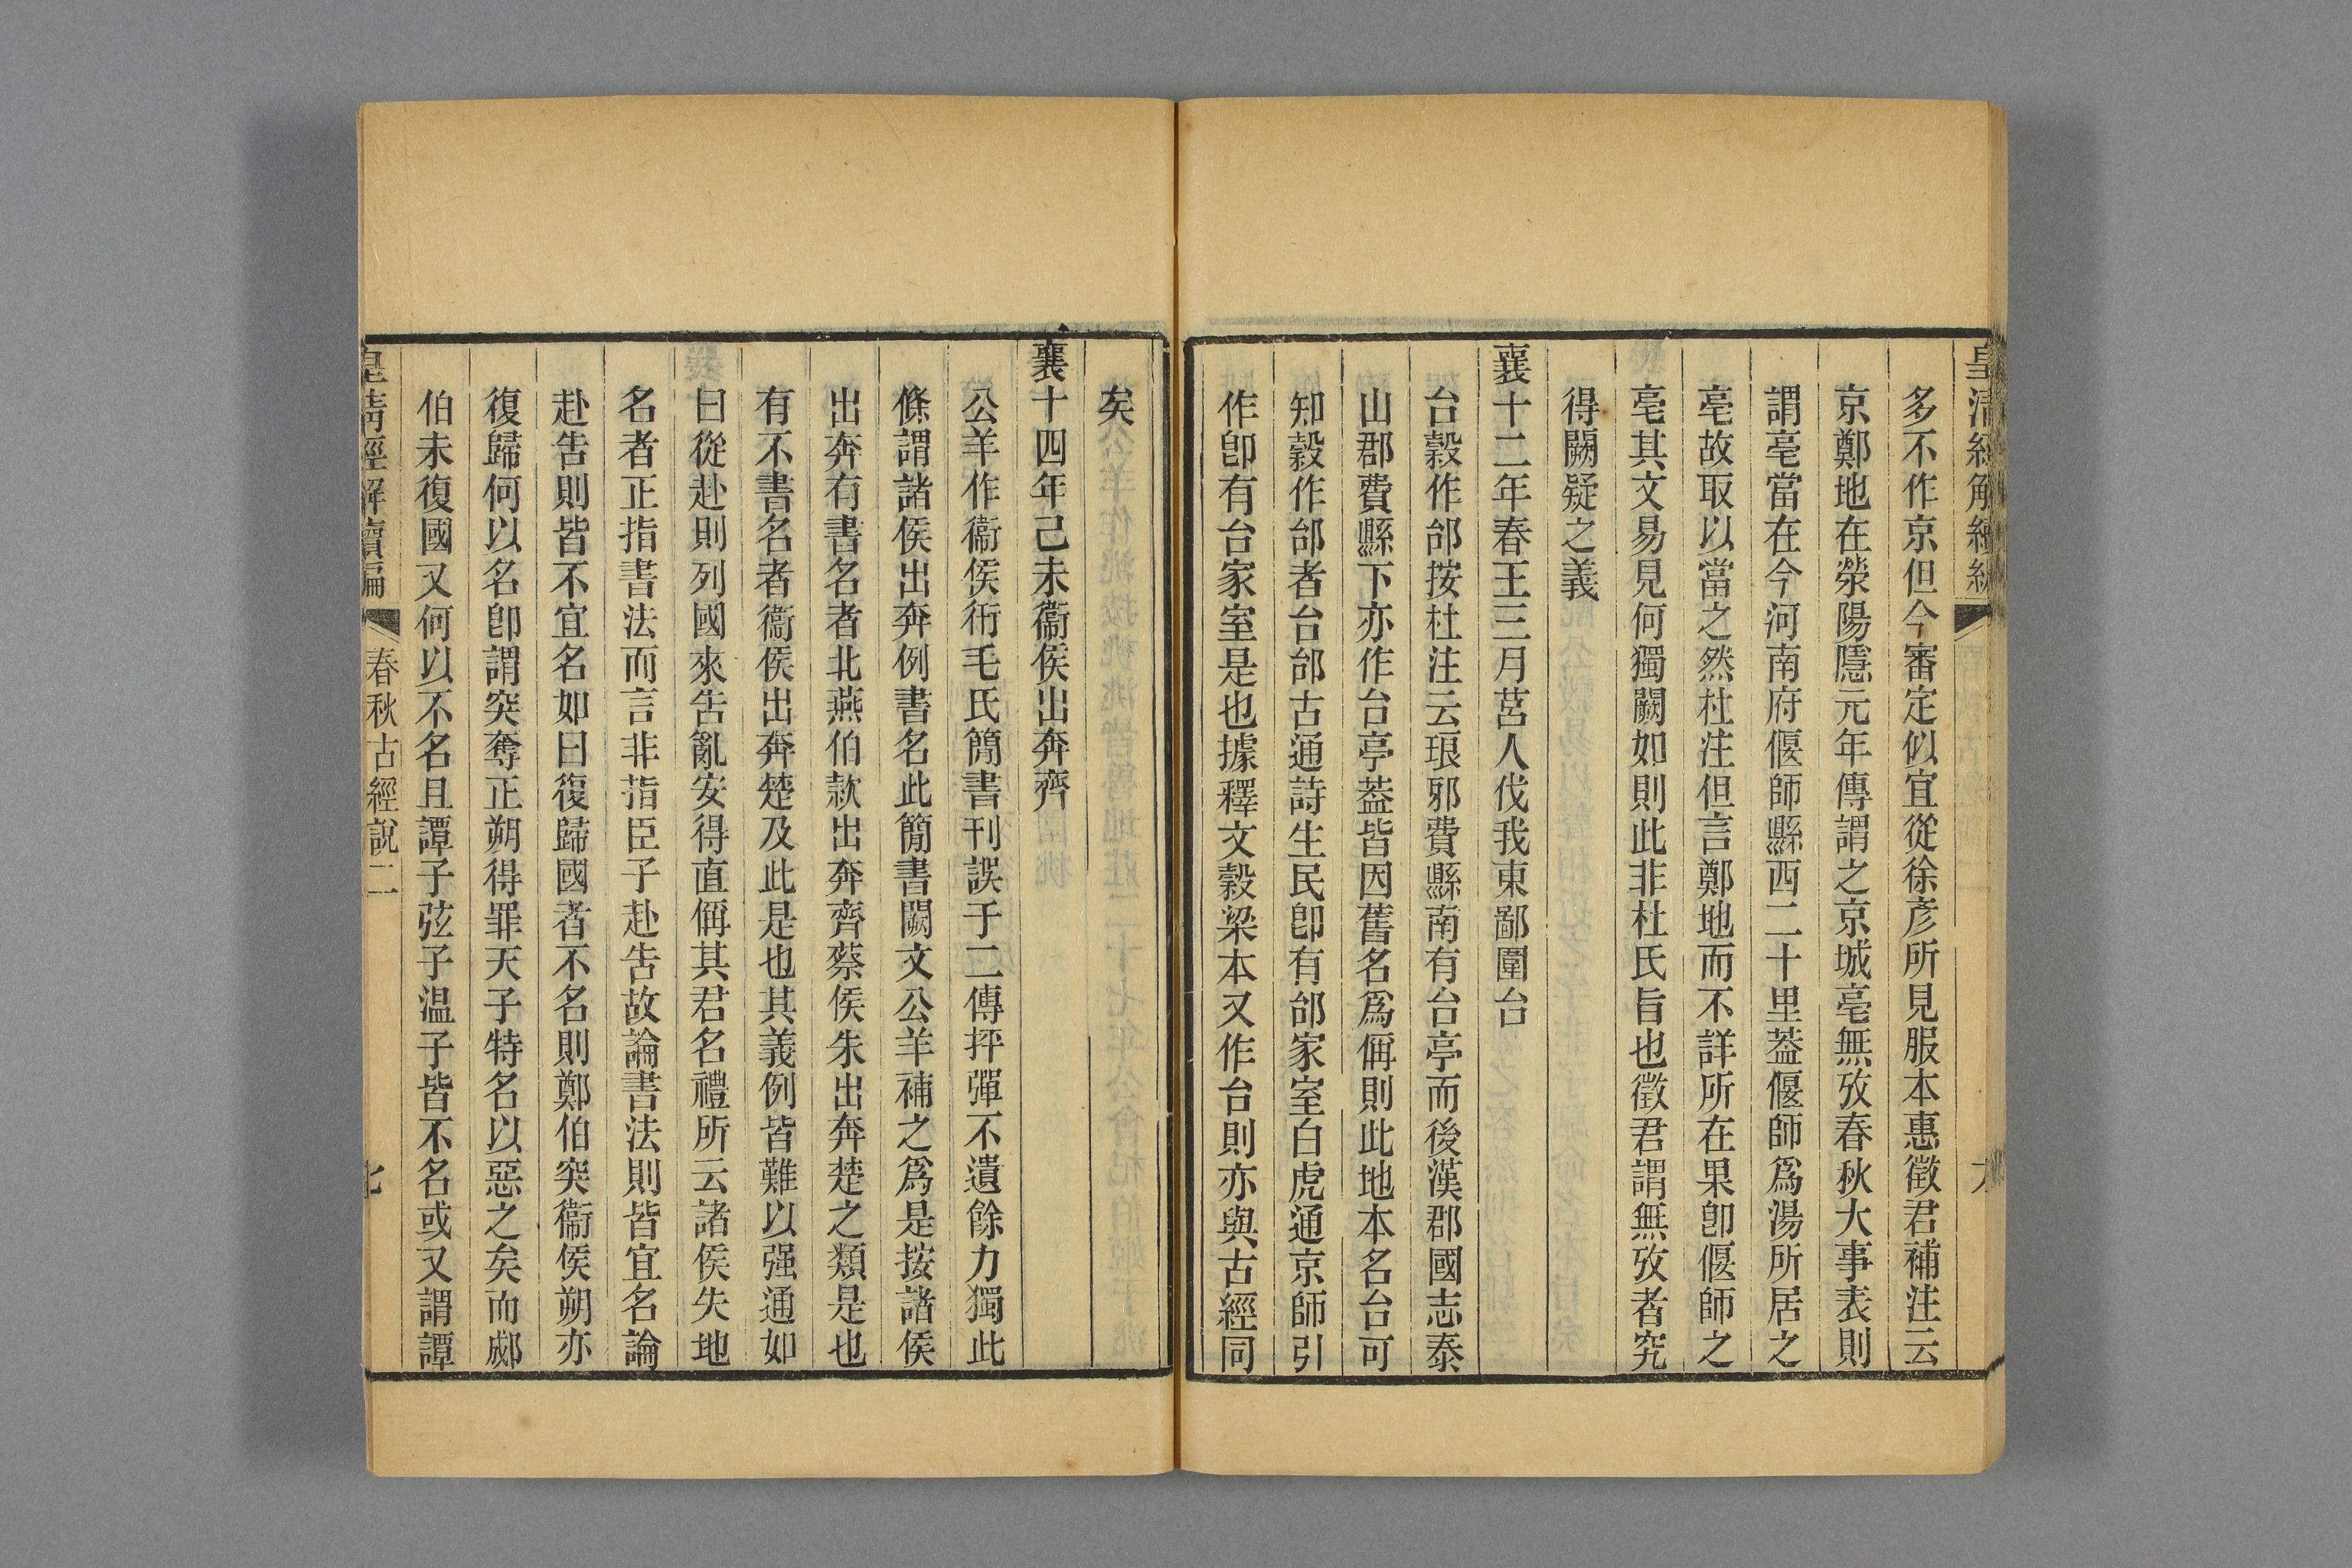 皇清經解續編
多不作京但今審定似宜從徐彥所見服本惠徵君補注云
京鄭地在滎陽隱元年傳謂之京城亳無攷春秋大事表則
謂亳當在今河南府偃師縣西二十里葢偃師爲湯所居之
亳故取以當之然杜注但言鄭地而不詳所在果卽偃師之
亳其文易見何獨闕如則此非杜氏旨也徵君謂無攷者究
得闕疑之義
襄十二年春王三月莒人伐我東鄙圍台
台穀作邰按杜注云琅邪費縣南有台亭而後漢郡國志泰
山郡費縣下亦作台亭葢皆因舊名爲偁則此地本名台可
知穀作邰者台邰古通詩生民卽有邰家室白虎通京師引
作卽有台家室是也據釋文穀梁本又作台則亦與古經同
矣
襄十四年己未衞侯出奔齊
公羊作衞侯衎毛氏簡書刊誤于二傳抨彈不遺餘力獨此
條謂諸侯出奔例書名此簡書闕文公羊補之爲是按諸侯
出奔有書名者北燕伯款出奔齊蔡侯朱出奔楚之類是也
有不書名者衞侯出奔楚及此是也其義例皆難以强通如
曰從赴則列國來告亂安得直偁其君名禮所云諸侯失地
名者正指書法而言非指臣子赴告故論書法則皆宜名論
赴告則皆不宜名如曰復歸國者不名則鄭伯突衞侯朔亦
復歸何以名卽謂突奪正朔得罪天子特名以惡之矣而郕
伯未復國又何以不名且譚子弦子温子皆不名或又謂譚
皇清經解續編
春秋古經說二